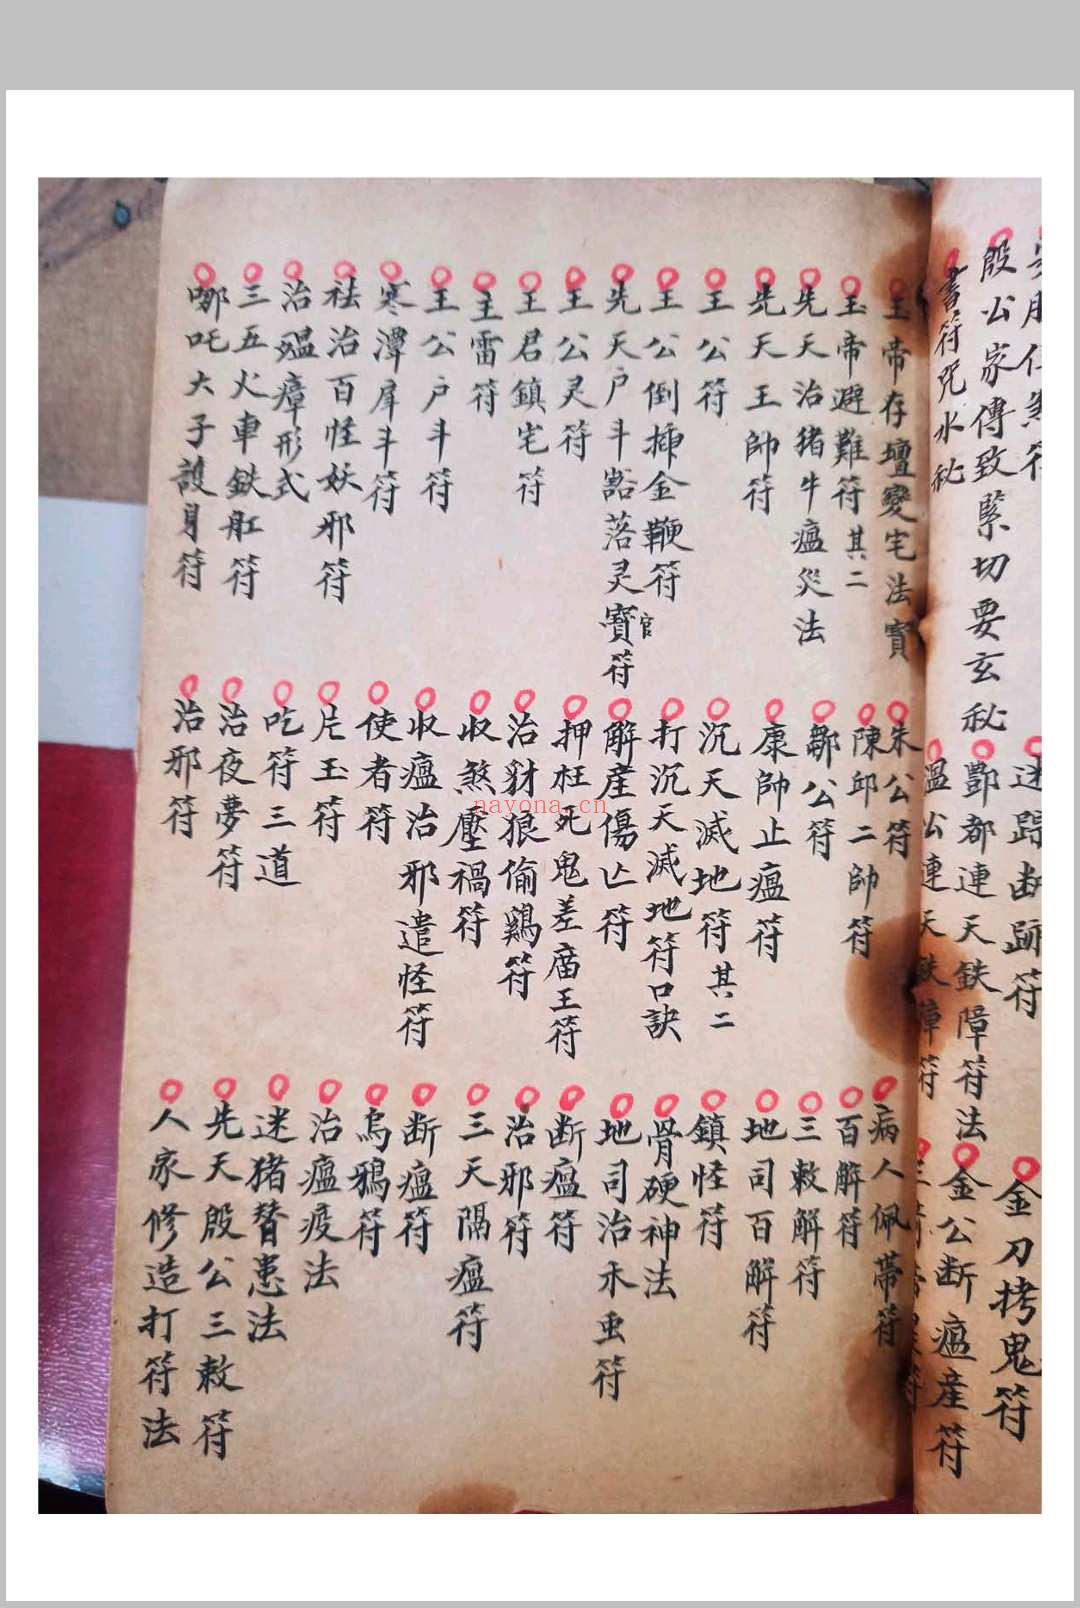 殷公家傳致緊切要玄秘
書符咒水秘
迷踪断跡符
酆都連天鉄障符法
溫公連天鉄障符
金刀拷鬼符
金公断瘟産符
玉帝存壇變宅法寳
玉帝避難符其二
先天治猪牛瘟災法
先天王帥符
王公符
王公倒揷金鞭符
先天户斗豁落灵寳符
官
王公灵符
王君鎮宅符
主雷符
王公户斗符
寒潭庠斗符
祛治百怪妖邪符
治瘟瘴形式
三五火車鉄缸符
哪吒大子護身符
朱公符
陳邱二帥符
鄒公符
康帥止瘟符
沉天滅地符其二
打沉天滅地符口訣
解産傷亡符
押枉死鬼差庙王符
治豺狼偷鷄符
收煞壓禍符
收瘟治邪遣怪符
使者符
片玉符
吃符三道
治夜夢符
治邪符
病人佩帶符
百解符
三敕解符
地司百解符
鎮怪符
骨硬神法
地司治禾虫符
断瘟符
治邪符
三天隔瘟符
断瘟符
烏鴉符
治瘟疫法
迷猪替患法
先天殷公三敕符
人家修造打符法
nayona.cn